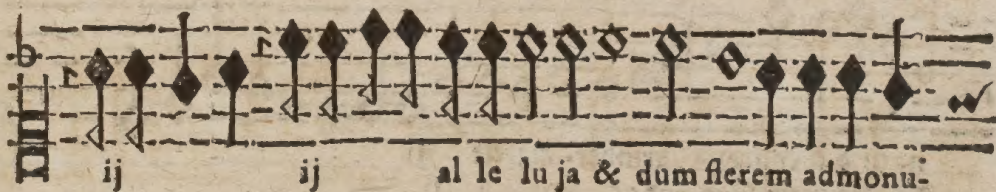 ij ij al le lu ja & dum flerem admonu-